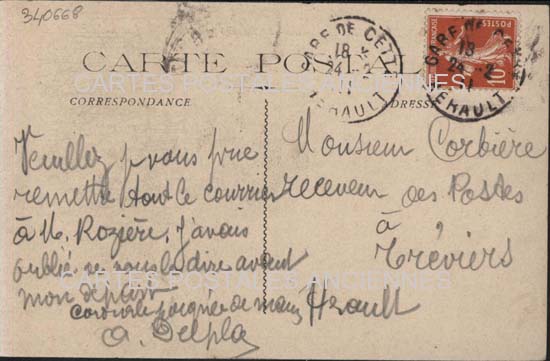 340668
CARTE POSTALE
CARTES POSTALES ANCIENNES
CORRESPONDANCE
ADRESSE
GARE DE CETTE
18
24 2
HERAULT
GARE DE CETTE
18
24 2
HERAULT
POSTES
10
Veuillez je vous prie
remettre tout ce courrier
à M. Rozière. J'avais
oublié de vous le dire avant
mon départ
Cordiale poignée de main
A. Delpla
Monsieur Corbière
receveur des Postes
à
Tréviers
Hérault
CARTES POSTALES ANCIENNES